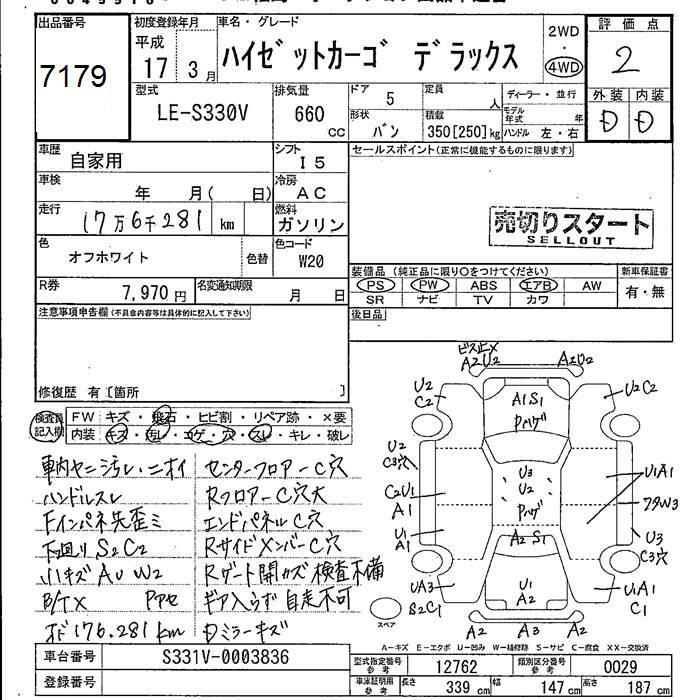 出品番号
7179
初度登録年月
平成
17 3月
車名・グレード
ハイゼットカーゴ デラックス
2WD
・
4WD
評価点
2
外装 内装
D D
型式
LE-S330V
排気量
660
CC
ドア 5
形状 バン
定員 人
積載 350[250]kg
ディーラー・並行
モデル年式 年
ハンドル 左・右
車歴
自家用
シフト
I5
セールスポイント(正常に機能するものに限ります)
車検
年 月( 日)
冷房
AC
走行
17万6千281 km
燃料
ガソリン
売切りスタート
SELLOUT
色
オフホワイト
色替
色コード
W20
R券
7,970円
名変通知期限
月 日
装備品(純正品に限り○をつけてください)
PS PW ABS エアB AW
SR ナビ TV カワ
新車保証書
有・無
注意事項申告欄(不具合内容等は具体的に記入して下さい)
後日品
修復歴 有〔箇所 〕
検査員記入欄
FW キズ・飛石・ヒビ割・リペア跡・×要
内装 キズ・汚レ・コゲ・穴・スレ・キレ・破レ
車内ヤニ汚レ・ニオイ
ハンドルスレ
Fインパネ先歪ミ
下廻りS2C2
小キズAU W2
オド176.281km
センターフロアーC穴
RフロアーC穴大
エンドパネルC穴
RサイドメンバーC穴
Rゲート開カズ 検査不備
ギア入らず自走不可
Dミラーキズ
ビス止メ
A2U2
A2U2
U2
C2
A1S1
U2C2
U2
C3穴
C2U1
A1
U1
A1
U3
U2
A2 S1
U1A1
フタW3
U3
C3穴
UA3
S2C1
U1
A2
U1A1
C1
スペア
A2 A3 A2
A-キズ E-エクボ U-凹 W-補修跡 S-サビ C-腐食 XX-交換済
車台番号
S331V-0003836
登録番号
型式指定番号
参考
12762
類別区分番号
参考
0029
車庫証明用
参考
長さ 339 cm
幅 147 cm
高さ 187 cm